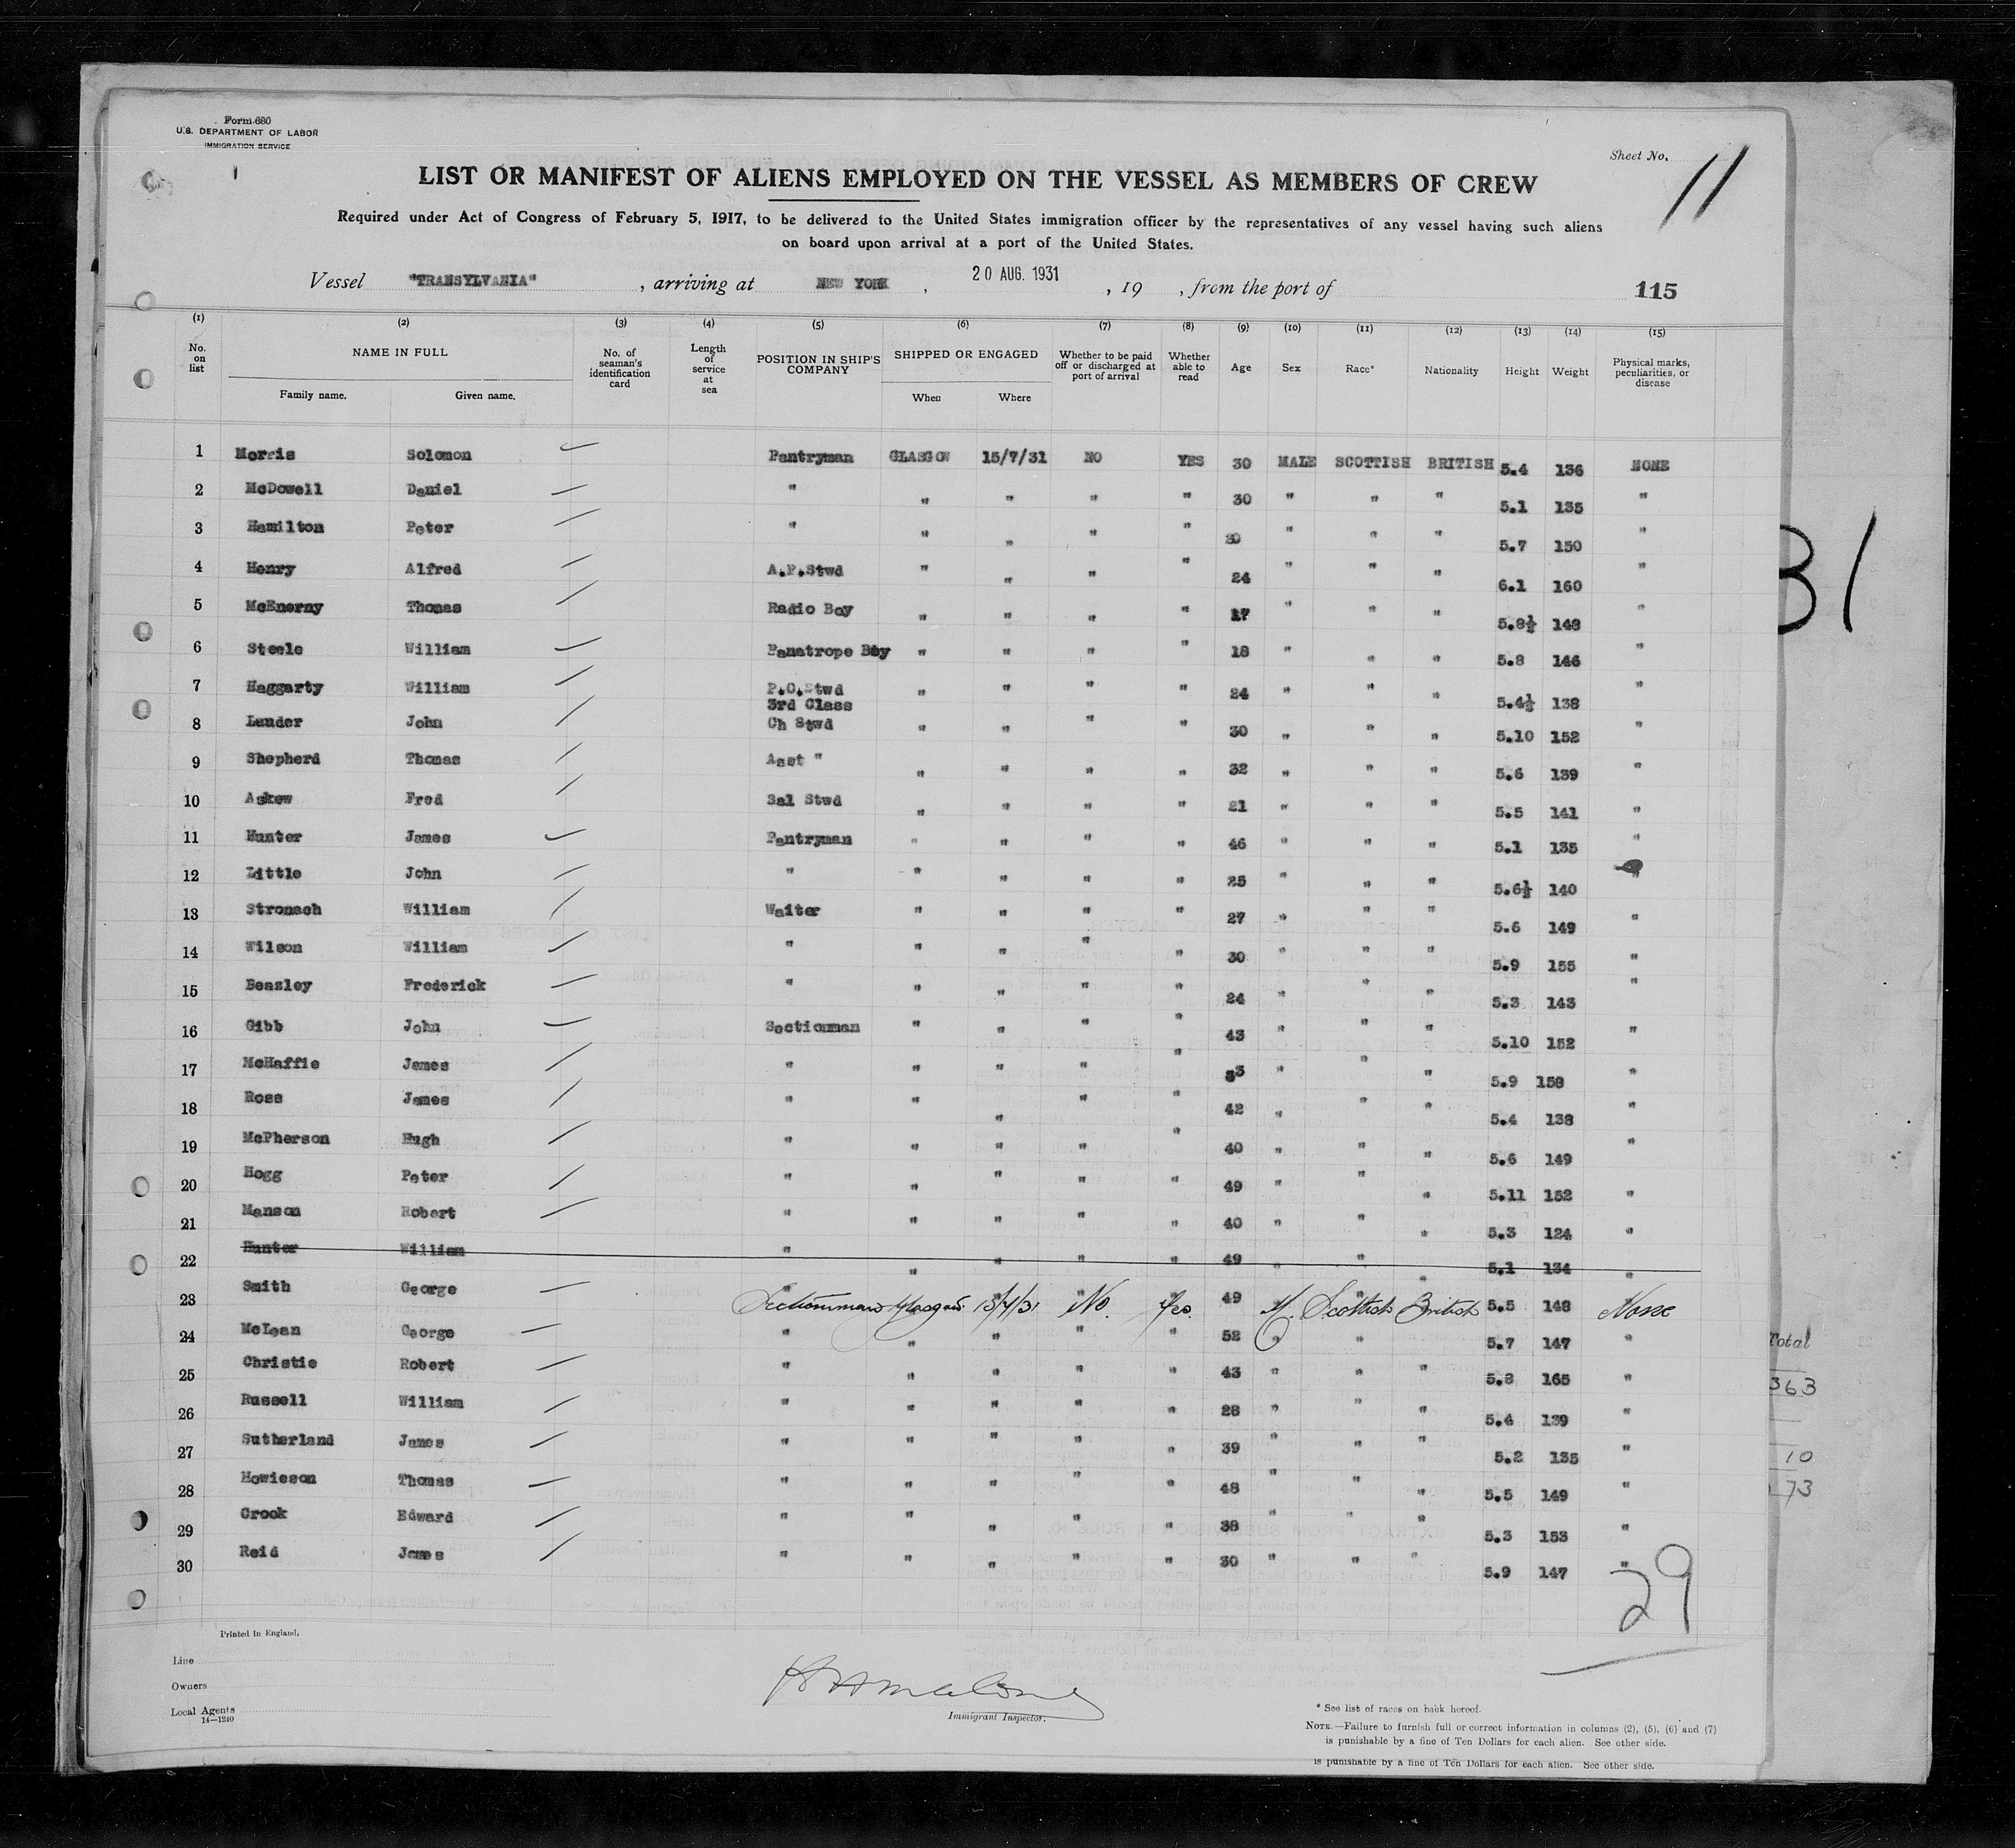 Form 680
U.S. DEPARTMENT OF LABOR
IMMIGRATION SERVICE
Sheet No. 11
LIST OR MANIFEST OF ALIENS EMPLOYED ON THE VESSEL AS MEMBERS OF CREW
Required under Act of Congress of February 5, 1917, to be delivered to the United States immigration officer by the representatives of any vessel having such aliens
on board upon arrival at a port of the United States.
Vessel "TRANSYLVANIA", arriving at NEW YORK, 20 AUG. 1931, 19 , from the port of 115
(1) (2) (3) (4) (5) (6) (7) (8) (9) (10) (11) (12) (13) (14) (15)
No. on list NAME IN FULL Family name. Given name. No. of seaman's identification card Length of service at sea POSITION IN SHIP'S COMPANY SHIPPED OR ENGAGED When Where Whether to be paid off or discharged at port of arrival Whether able to read Age Sex Race* Nationality Height Weight Physical marks, peculiarities, or disease
1 Morris Solomon Pantryman GLASGOW 15/7/31 NO YES 30 MALE SCOTTISH BRITISH 5.4 136 NONE
2 McDowell Daniel " " " " " 30 " " " 5.1 135 "
3 Hamilton Peter " " " " " " " " 5.7 150 "
4 Henry Alfred A.P.Stwd " " " " 24 " " " 6.1 160 "
5 McEnerny Thomas Radio Boy " " " " 17 " " " 5.8½ 148 "
6 Steele William Panatrope Boy " " " " 18 " " " 5.8 146 "
7 Haggarty William P.O.Stwd " " " " 24 " " " 5.4½ 138 "
3rd Class
8 Lauder John Ch Stwd " " " " 30 " " " 5.10 152 "
9 Shepherd Thomas Asst " " " " " 32 " " " 5.6 139 "
10 Askew Fred Sal Stwd " " " " 21 " " " 5.5 141 "
11 Hunter James Pantryman " " " " 46 " " " 5.1 135 "
12 Little John " " " " " 25 " " " 5.6½ 140 "
13 Stronach William Waiter " " " " 27 " " " 5.6 149 "
14 Wilson William " " " " " 30 " " " 5.9 155 "
15 Beazley Frederick " " " " " 24 " " " 5.3 143 "
16 Gibb John Sectionman " " " " 43 " " " 5.10 152 "
17 McHaffie James " " " " " " " " 5.9 158 "
18 Ross James " " " " " 42 " " " 5.4 138 "
19 McPherson Hugh " " " " " 40 " " " 5.6 149 "
20 Hogg Peter " " " " " 49 " " " 5.11 152 "
21 Manson Robert " " " " " 40 " " " 5.3 124 "
22 Hunter William " " " " " 49 " " " 5.1 134 "
23 Smith George Sectionman Glasgow 15/7/31 No. Yes. 49 M. Scottish British 5.5 148 None
24 McLean George " " " " " 52 " " 5.7 147 "
25 Christie Robert " " " " " 43 " " " 5.8 165 "
26 Russell William " " " " " 28 " " " 5.4 139 "
27 Sutherland James " " " " " 39 " " " 5.2 135 "
28 Howieson Thomas " " " " " 48 " " " 5.5 149 "
29 Crook Edward " " " " " 38 " " " 5.3 153 "
30 Reid James " " " " " 30 " " " 5.9 147 "
29
Printed in England.
Line
Owners
Local Agents
14—1240
Immigrant Inspector.
* See list of races on back hereof.
NOTE.—Failure to furnish full or correct information in columns (2), (5), (6) and (7)
is punishable by a fine of Ten Dollars for each alien. See other side.
is punishable by a fine of Ten Dollars for each alien. See other side.
31
Total
363
10
73